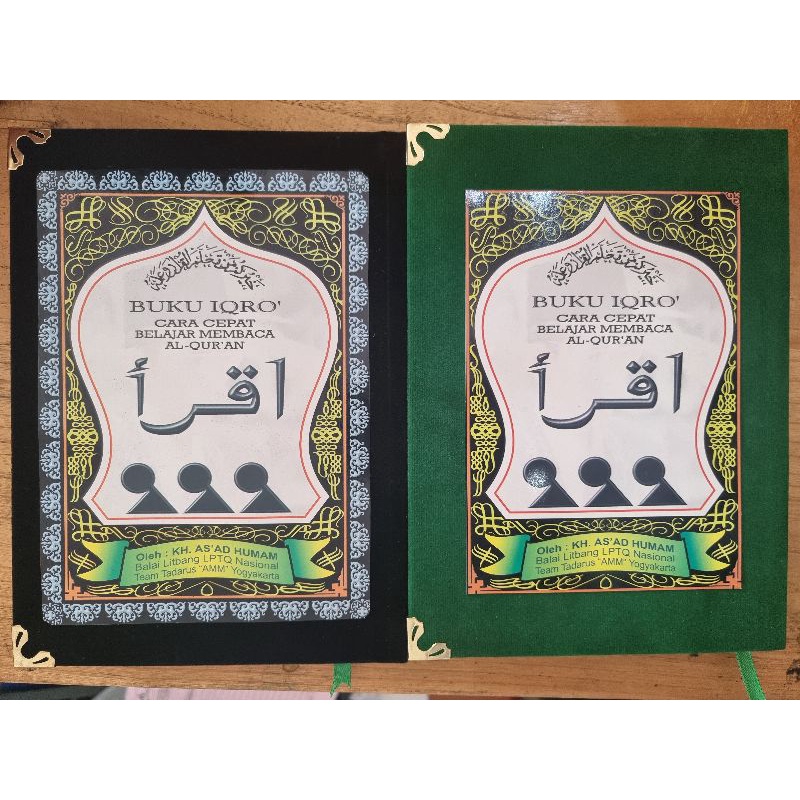 خيركم من تعلم القرآن وعلمه
BUKU IQRO'
CARA CEPAT
BELAJAR MEMBACA
AL-QUR'AN
اقرأ
Oleh : KH. AS'AD HUMAM
Balai Litbang LPTQ Nasional
Team Tadarus "AMM" Yogyakarta
خيركم من تعلم القرآن وعلمه
BUKU IQRO'
CARA CEPAT
BELAJAR MEMBACA
AL-QUR'AN
اقرأ
Oleh : KH. AS'AD HUMAM
Balai Litbang LPTQ Nasional
Team Tadarus "AMM" Yogyakarta